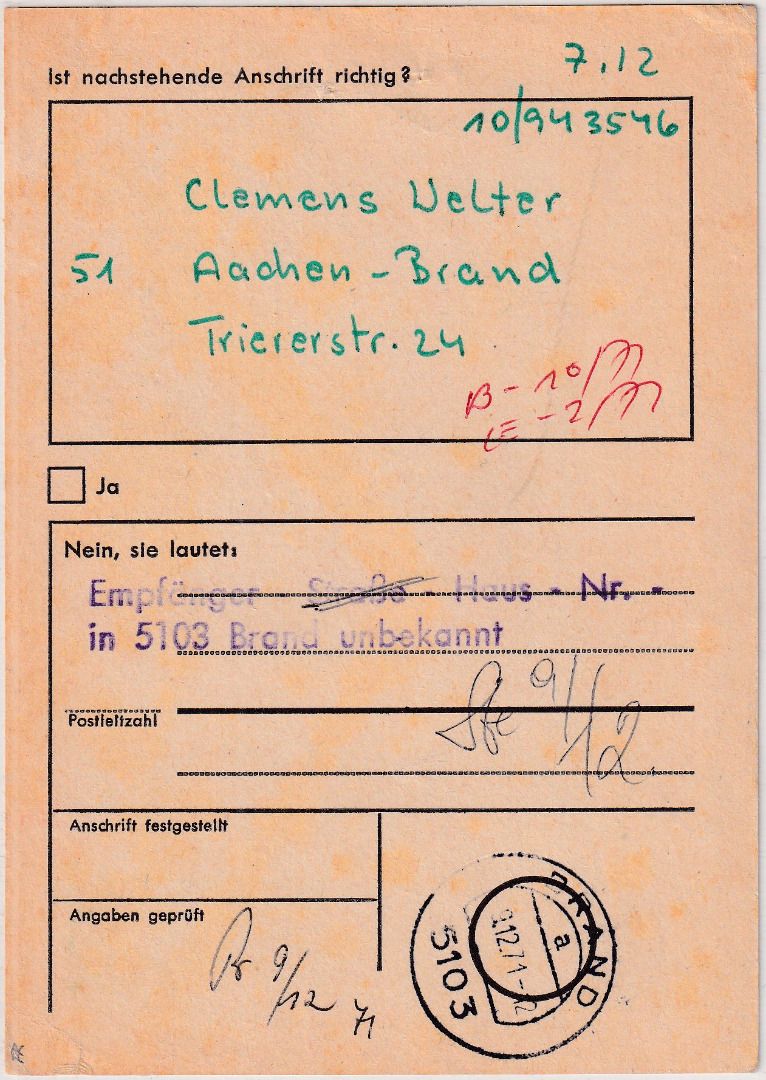 Ist nachstehende Anschrift richtig?
7.12
10/943546
Clemens Welter
51 Aachen-Brand
Triererstr. 24
B - 10/
LE - 2/
Ja
Nein, sie lautet:
Empfänger - Straße - Haus - Nr. -
in 5103 Brand unbekannt
9/12.
Postleitzahl
Anschrift festgestellt
Angaben geprüft
9/12 71
BRAND
a
9.12.71-12
5103